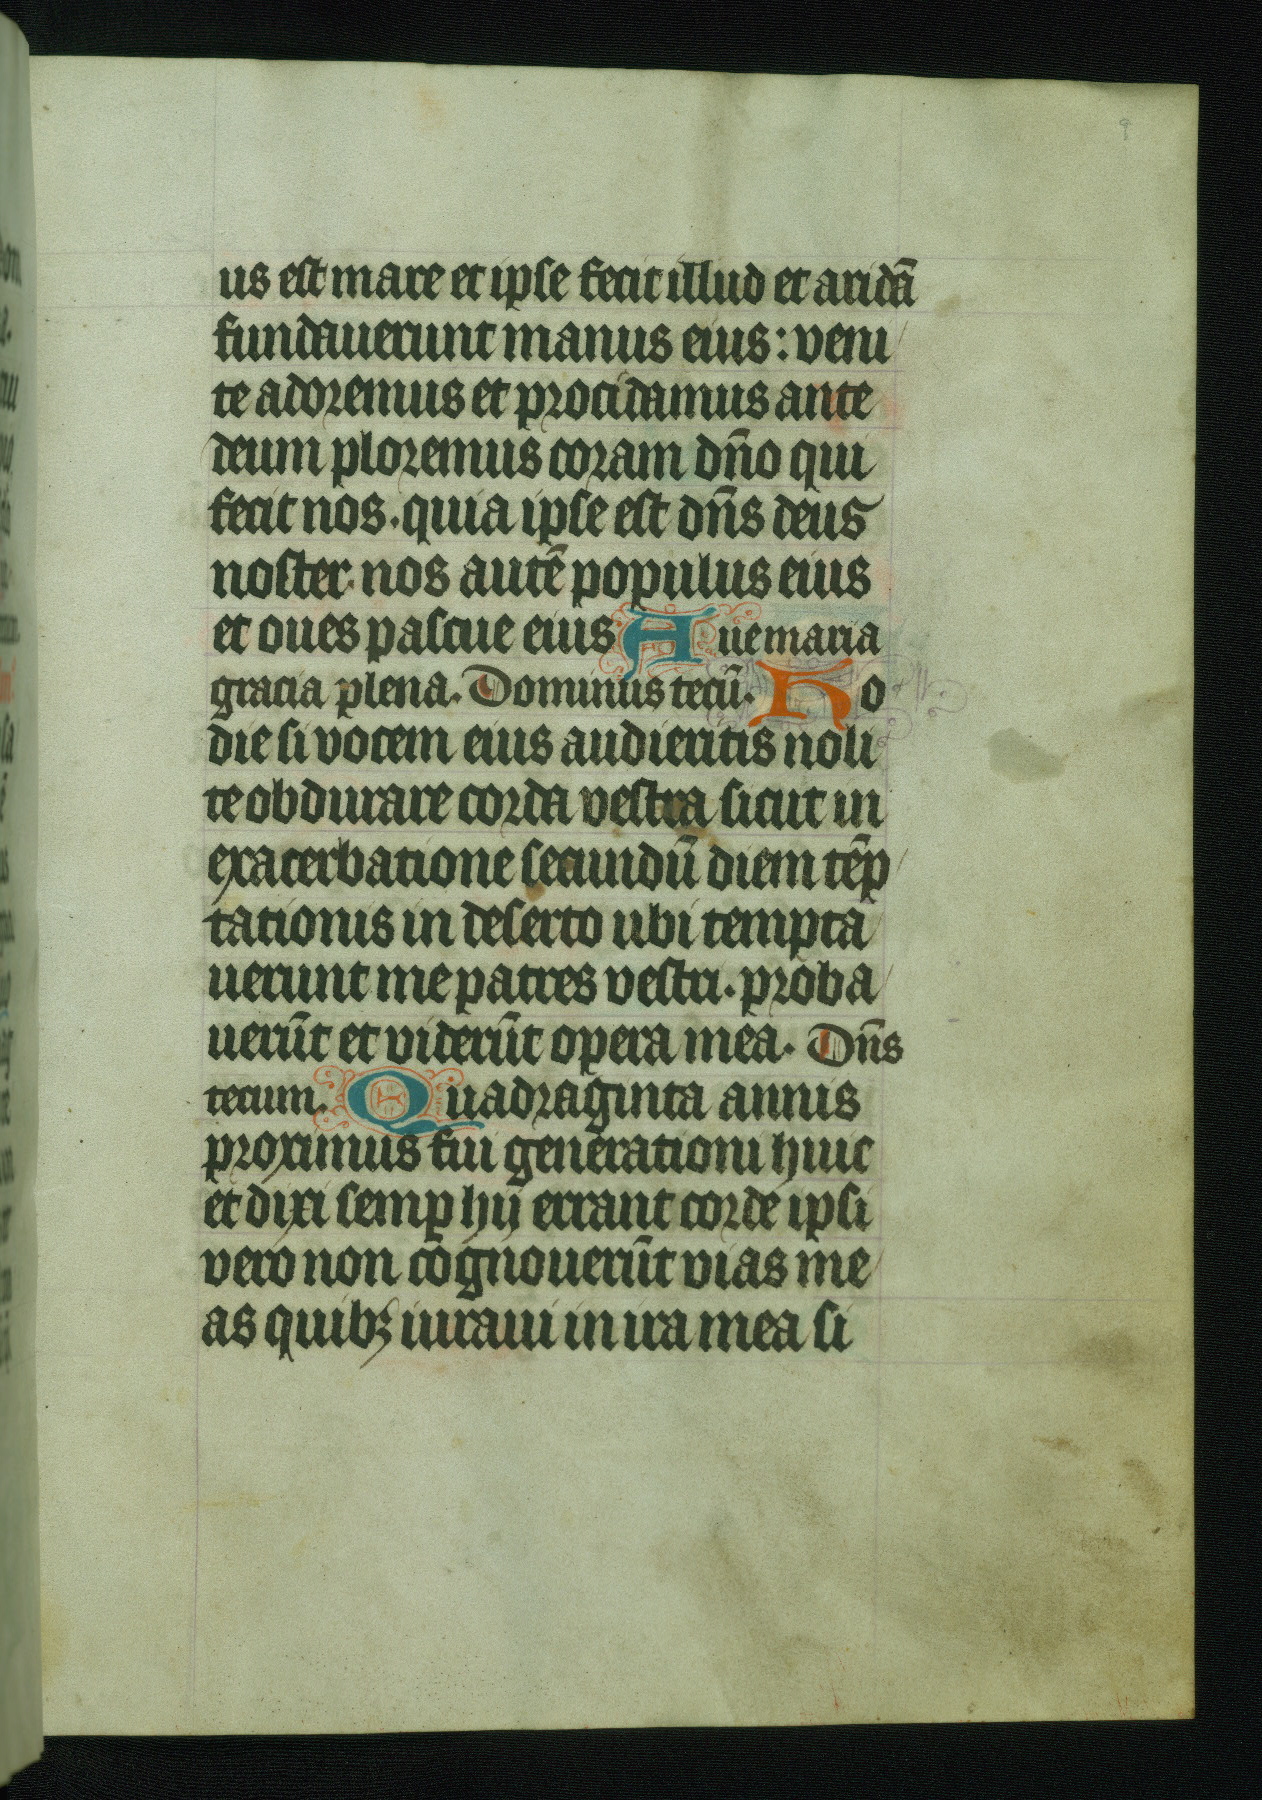 9
us est mare et ipse fecit illud et aridā
fundauerunt manus eius: veni
te adoremus et procidamus ante
deum ploremus coram dn̄o qui
fecit nos. quia ipse est dn̄s deus
noster. nos autē populus eius
et oues pascue eius Aue maria
gracia plena. Dominus tecū. Ho
die si vocem eius audieritis noli
te obdurare corda vestra sicut in
exacerbatione secundū diem tēp
tationis in deserto ubi tempta
uerunt me patres vestri. proba
uerūt et viderūt opera mea. Dn̄s
tecum. Quadraginta annis
proximus fui generationi huic
et dixi semꝑ hij errant corde ipsi
vero non cognouerūt vias me
as quibꝫ iuraui in ira mea si